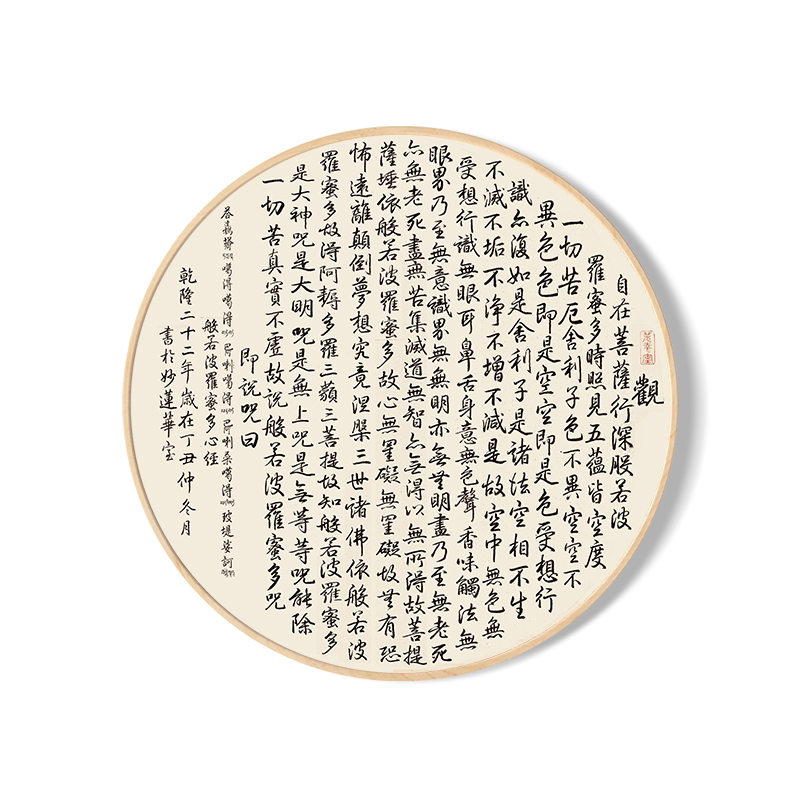 觀
自在菩薩行深般若波
羅蜜多時照見五蘊皆空度
一切苦厄舍利子色不異空空不
異色色即是空空即是色受想行
識亦復如是舍利子是諸法空相不生
不滅不垢不淨不增不減是故空中無色無
受想行識無眼耳鼻舌身意無色聲香味觸法無
眼界乃至無意識界無無明亦無無明盡乃至無老死
亦無老死盡無苦集滅道無智亦無得以無所得故菩提
薩埵依般若波羅蜜多故心無罣礙無罣礙故無有恐
怖遠離顛倒夢想究竟涅槃三世諸佛依般若波
羅蜜多故得阿耨多羅三藐三菩提故知般若波羅蜜多
是大神呪是大明呪是無上呪是無等等呪能除
一切苦真實不虛故說般若波羅蜜多呪
即說呪曰
噶得噶得 噶得 桑噶得 娑訶
般若波羅蜜多心經
乾隆二十二年歲在丁丑仲冬月
書於妙蓮華室